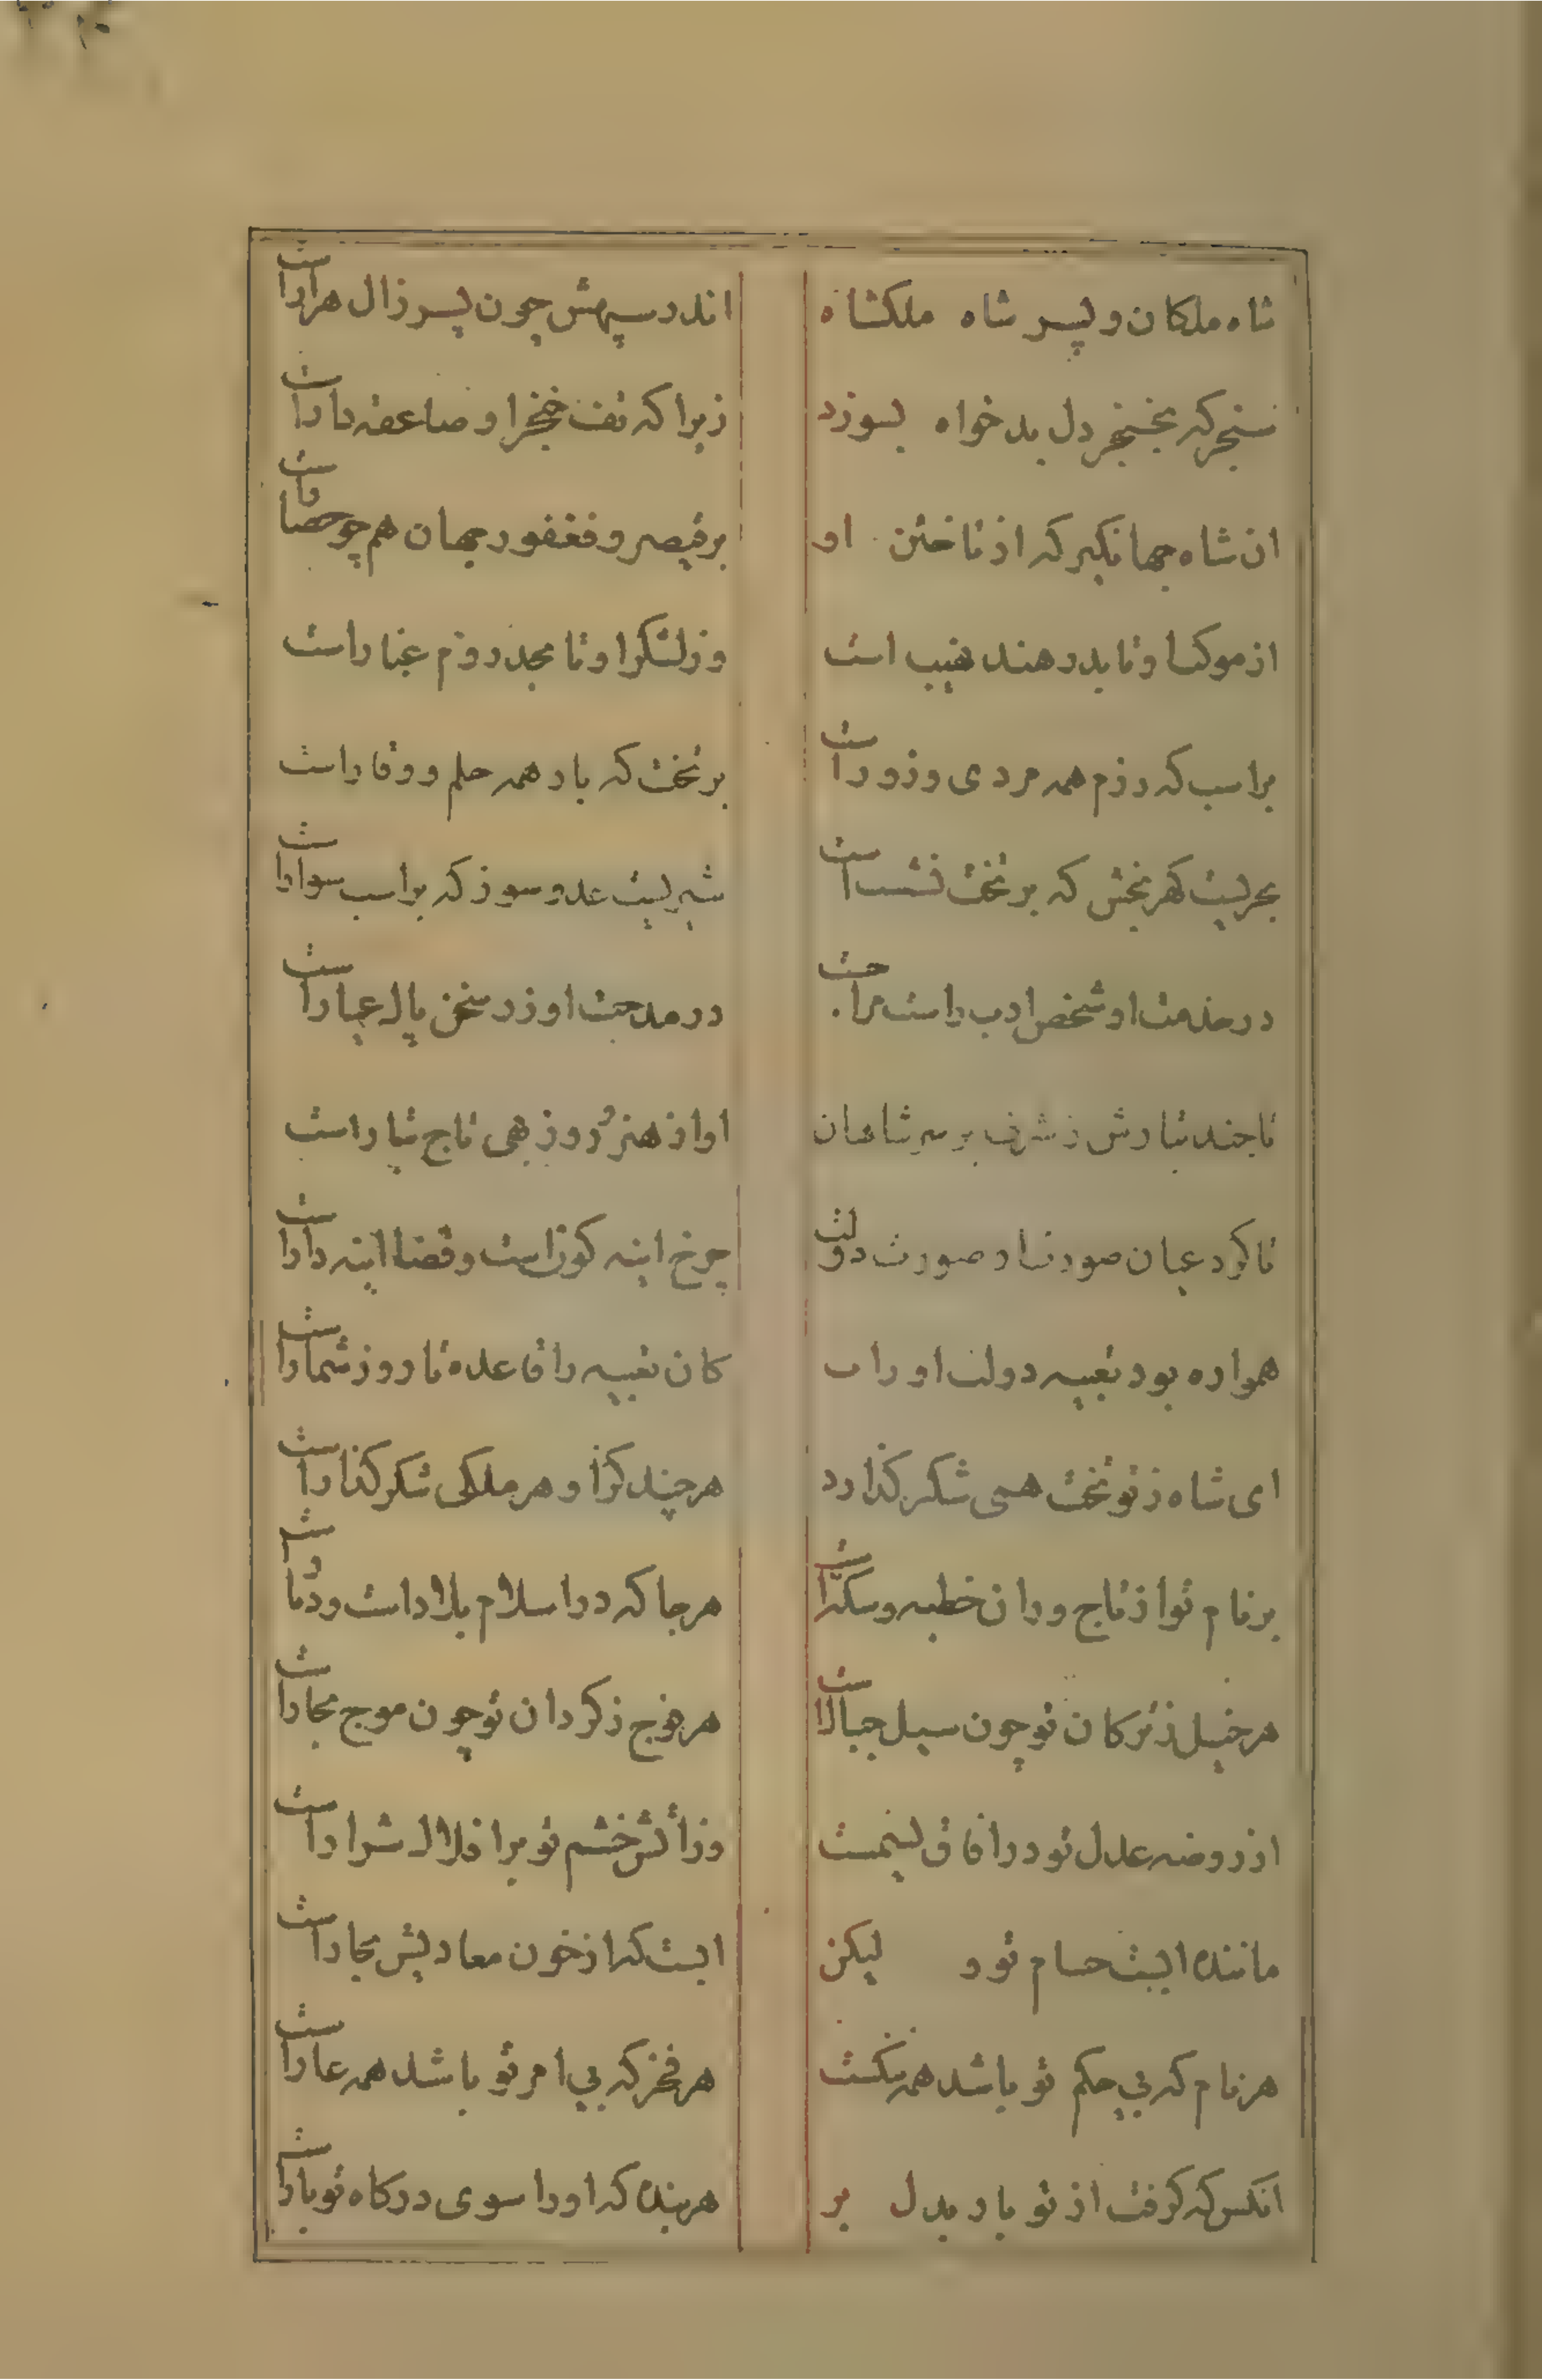 شاه ملکان و پسر شاه ملکشاه
اندر سپهش چون پسر زال هزاراست
سنجر که بخنجر دل بدخواه بسوزد
زیرا که تف خنجر او صاعقه بارا است
ان شاه جهانکیر که از تاختن او
بر قیصر و فغفور جهان هم چو حصار است
از موکب او تا بدر هند نهیب است
وز لشکر او تا بحد روم غبار است
بر اسب که رزم همه مردی و زور است
بر تخت که بار همه حلم و وقار است
بحریست کهر بخش که بر تخت نشست است
شیریست عدو سوز که بر اسب سوار است
در خدمت او شخص ادب راست مراحت
در مدحت او زر سخن پاک عیار است
تا چند تبارش ز شرف بر سر شاهان
او از هنر و روزبهی تاج تبار است
تا کرد عیان صورت او صورت دولت
چرخ اینه کون است و قضا اینه دار است
همواره بود تعبیه دولت او راست
کان تعبیه را قاعده تا روز شمار است
ای شاه ز تو تخت همی شکر کذارد
هر چند کز او هر ملکی شکر کذار است
بر نام تو از تاج وران خطبه و سکه است
هر جا که در اسلام بلاد است و دیار است
هر خیل ز ترکان تو چون سیل جبال است
هر فوج ز کردان تو چون موج بحار است
از روضه عدل تو در افاق نسیمست
وز آتش خشم تو بر افلاک شرار است
ماننده ابیست حسام تو و لیکن
ابیست که از خون معادیش بخار است
هر نام که بی حکم تو باشد همه ننکست
هر فخر که بی امر تو باشد همه عار است
انکس که کرفت از تو بار بدل بر
هر بنده که او را سوی درکاه تو بار است